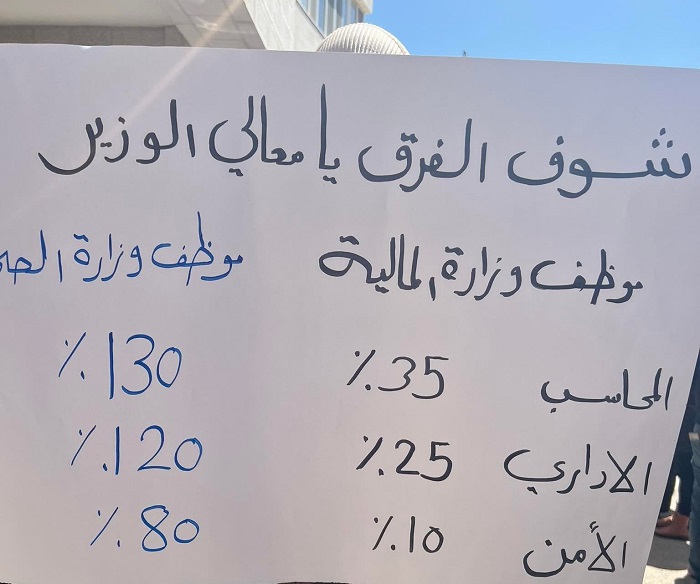 شوف الفرق يا معالي الوزير
موظف وزارة المالية موظف وزارة
المحاسب 35٪ 130٪
الاداري 25٪ 120٪
الأمن 10٪ 80٪